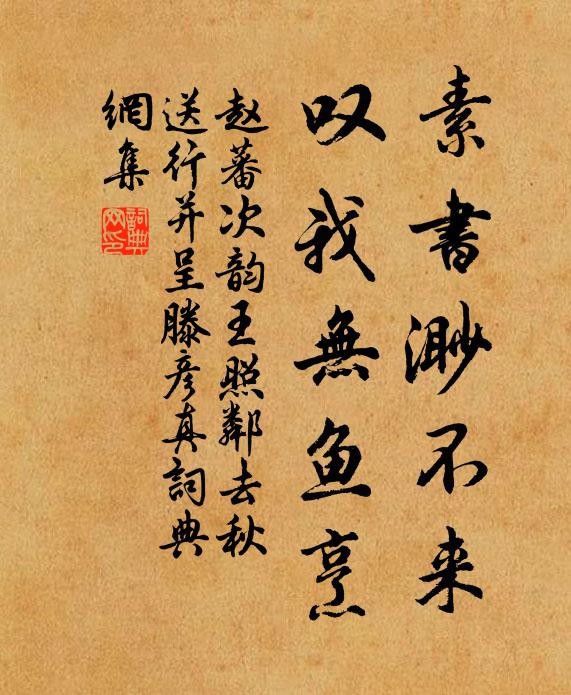 素書渺不来
叹我無鱼烹
赵蕃次韵王照鄰去秋
送行并呈滕彦真詞典
網集
詞典
网印